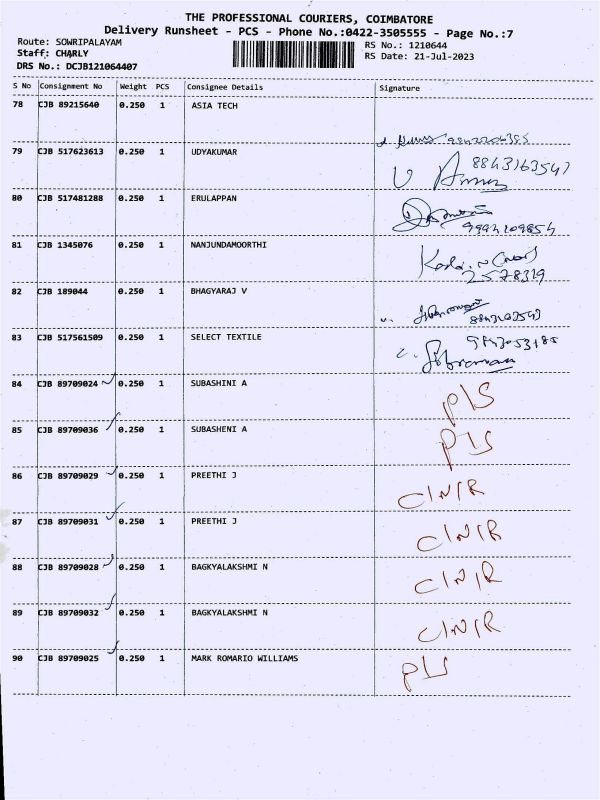 THE PROFESSIONAL COURIERS, COIMBATORE
Delivery Runsheet - PCS - Phone No.:0422-3505555 - Page No.:7
Route: SOWRIPALAYAM
Staff: CHARLY
DRS No.: DCJB121064407
RS No.: 1210644
RS Date: 21-Jul-2023
S No Consignment No Weight PCS Consignee Details Signature
78 CJB 89215640 0.250 1 ASIA TECH
79 CJB 517623613 0.250 1 UDYAKUMAR 8843163547
80 CJB 517481288 0.250 1 ERULAPPAN
81 CJB 1345076 0.250 1 NANJUNDAMOORTHI 2578319
82 CJB 189044 0.250 1 BHAGYARAJ V
83 CJB 517561509 0.250 1 SELECT TEXTILE
84 CJB 89709024 0.250 1 SUBASHINI A P/S
85 CJB 89709036 0.250 1 SUBASHENI A P/S
86 CJB 89709029 0.250 1 PREETHI J C/N/R
87 CJB 89709031 0.250 1 PREETHI J C/N/R
88 CJB 89709028 0.250 1 BAGKYALAKSHMI N C/N/R
89 CJB 89709032 0.250 1 BAGKYALAKSHMI N C/N/R
90 CJB 89709025 0.250 1 MARK ROMARIO WILLIAMS P/S